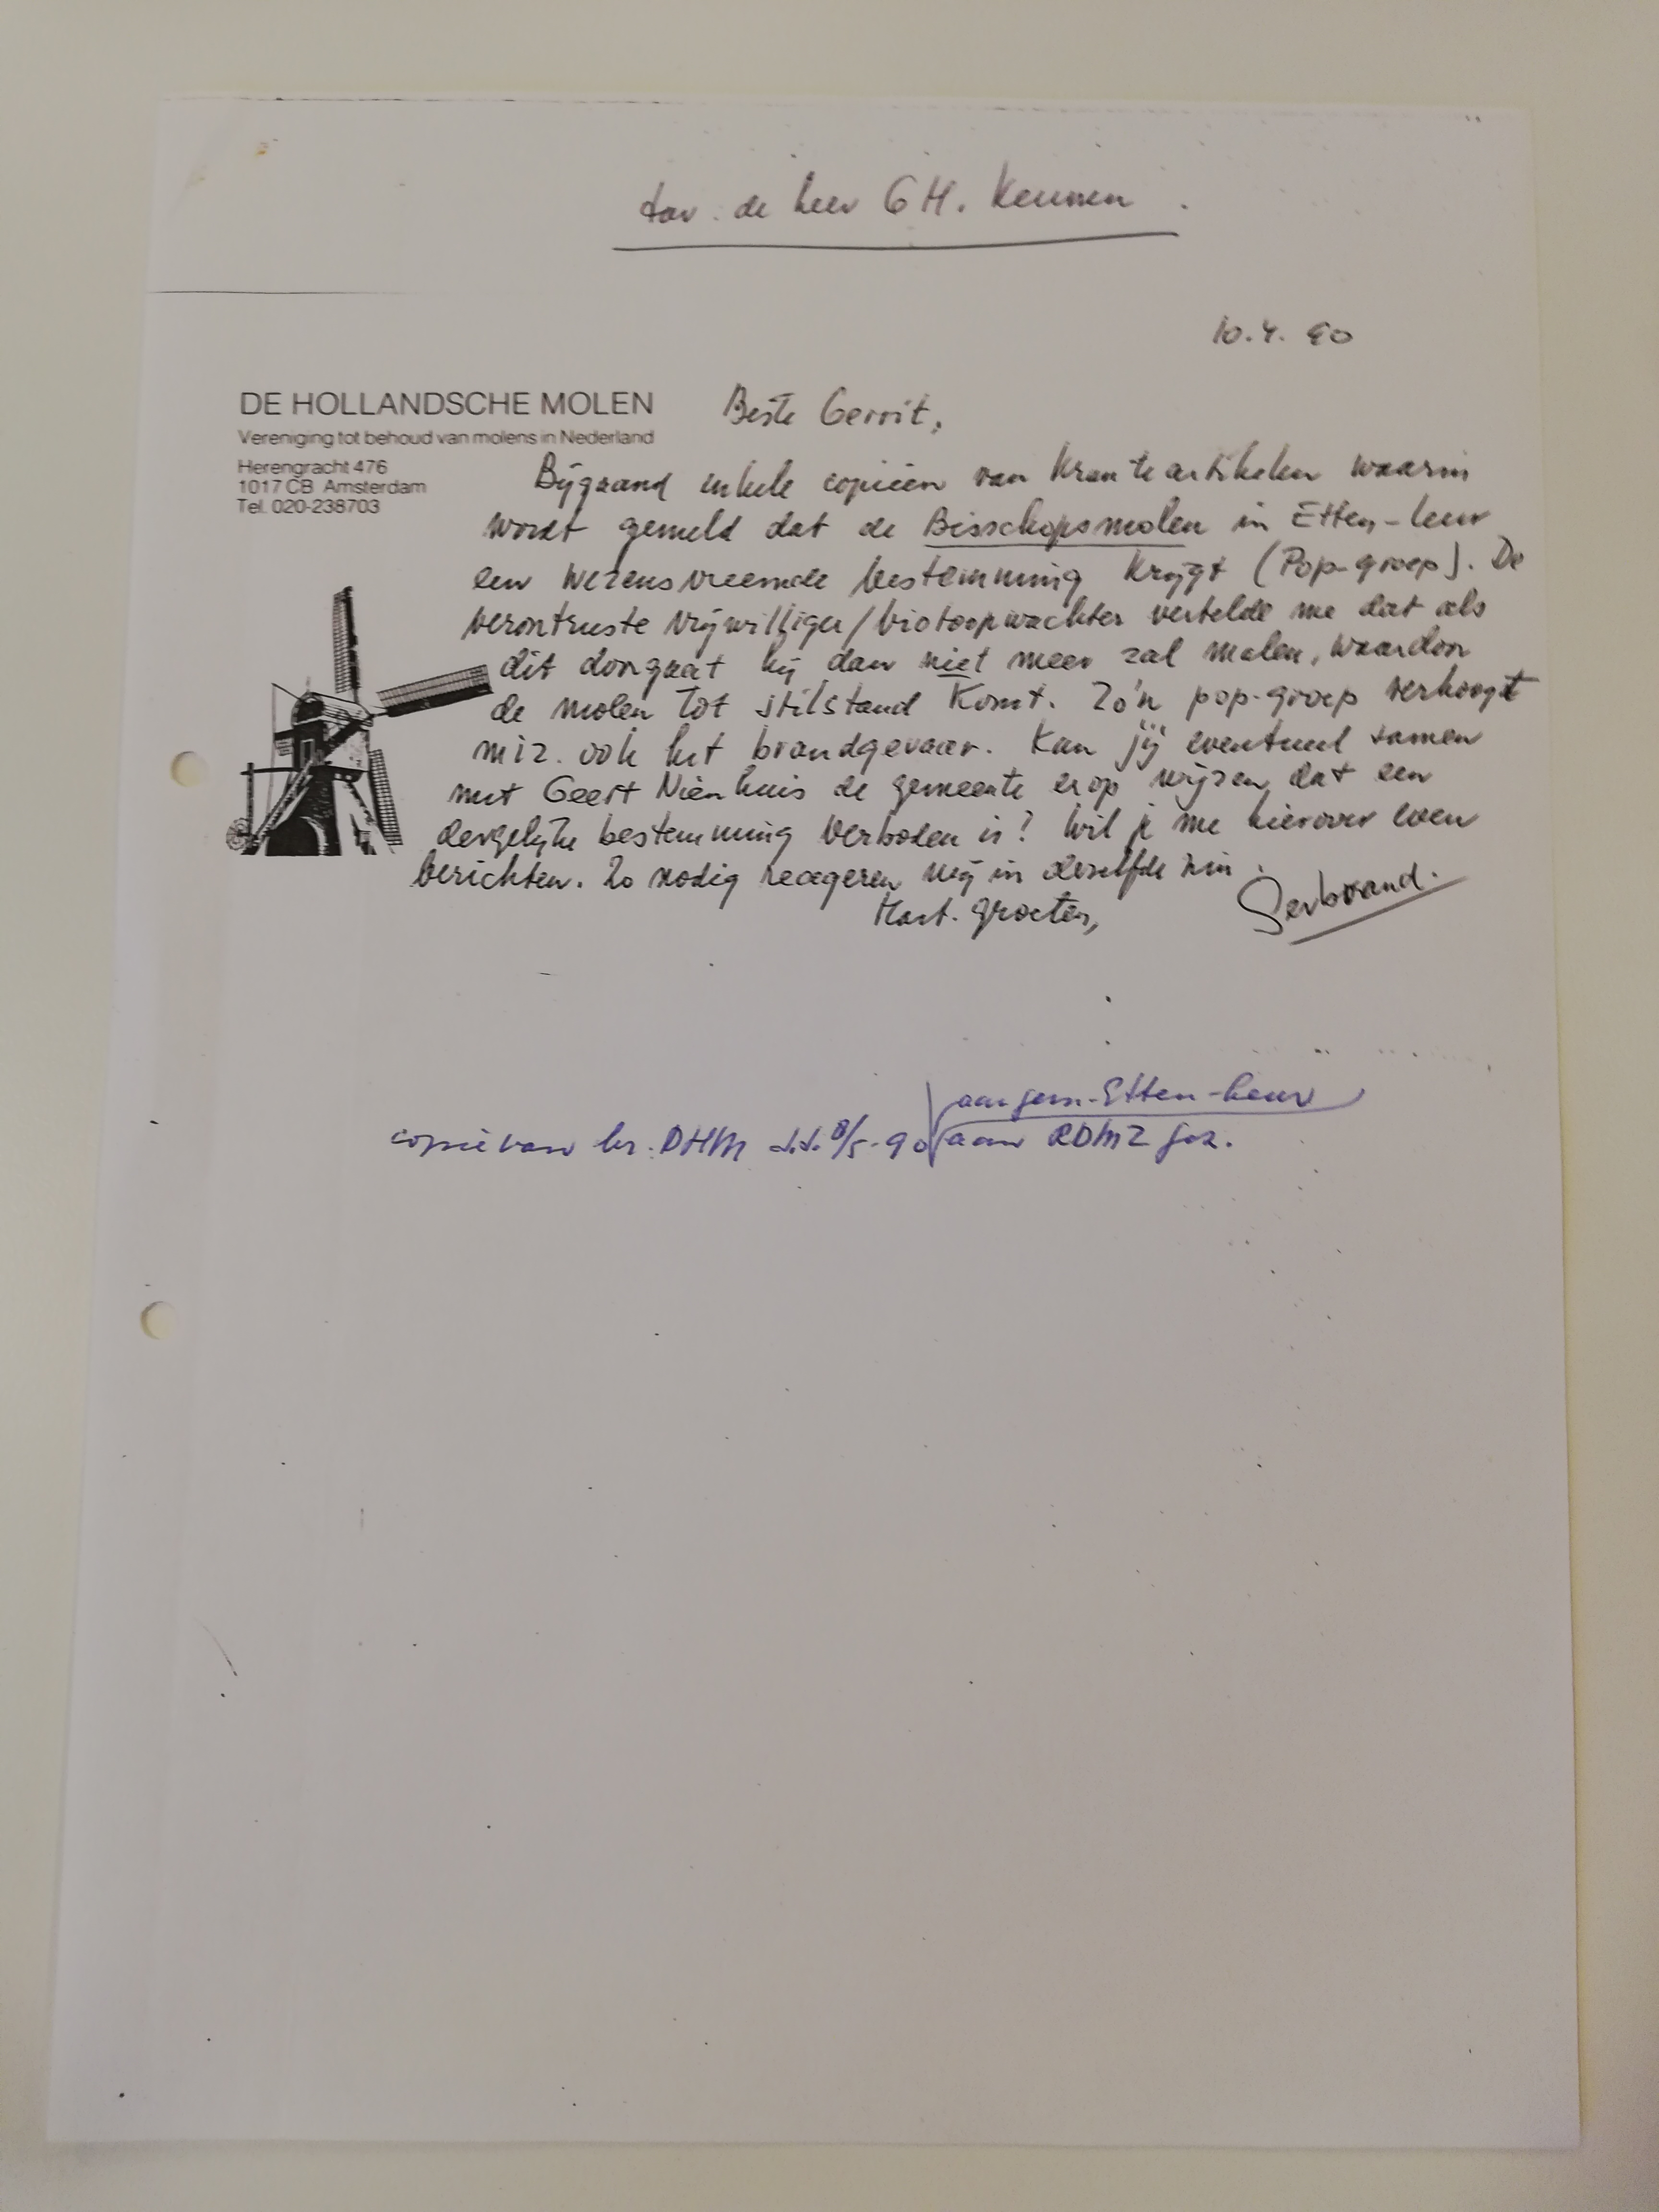 tav. de heer G H. Keunen.
10.4.90
DE HOLLANDSCHE MOLEN
Vereniging tot behoud van molens in Nederland
Herengracht 476
1017 CB Amsterdam
Tel. 020-238703
Beste Gerrit,
Bijgaand enkele copieën van Kranteartikelen waarin
wordt gemeld dat de Bisschopsmolen in Etten-Leur
een wezensvreemde bestemming krijgt (Pop-groep). De
verontruste vrijwilliger/biotoopwachter vertelde me dat als
dit doorgaat hij dan niet meer zal malen, waardoor
de molen tot stilstand Komt. Zo'n pop-groep verhoogt
m.i.z. ook het brandgevaar. Kan jij eventueel samen
met Geert Nienhuis de gemeente erop wijzen dat een
dergelijke bestemming verboden is? Wil je me hierover even
berichten. Zo nodig reageren wij in dezelfde zin.
Hart. groeten,
Gerbrand.
aan gem. Etten-Leur
copie van br. DHM d.d. 8/5-90 aan RDMZ gez.